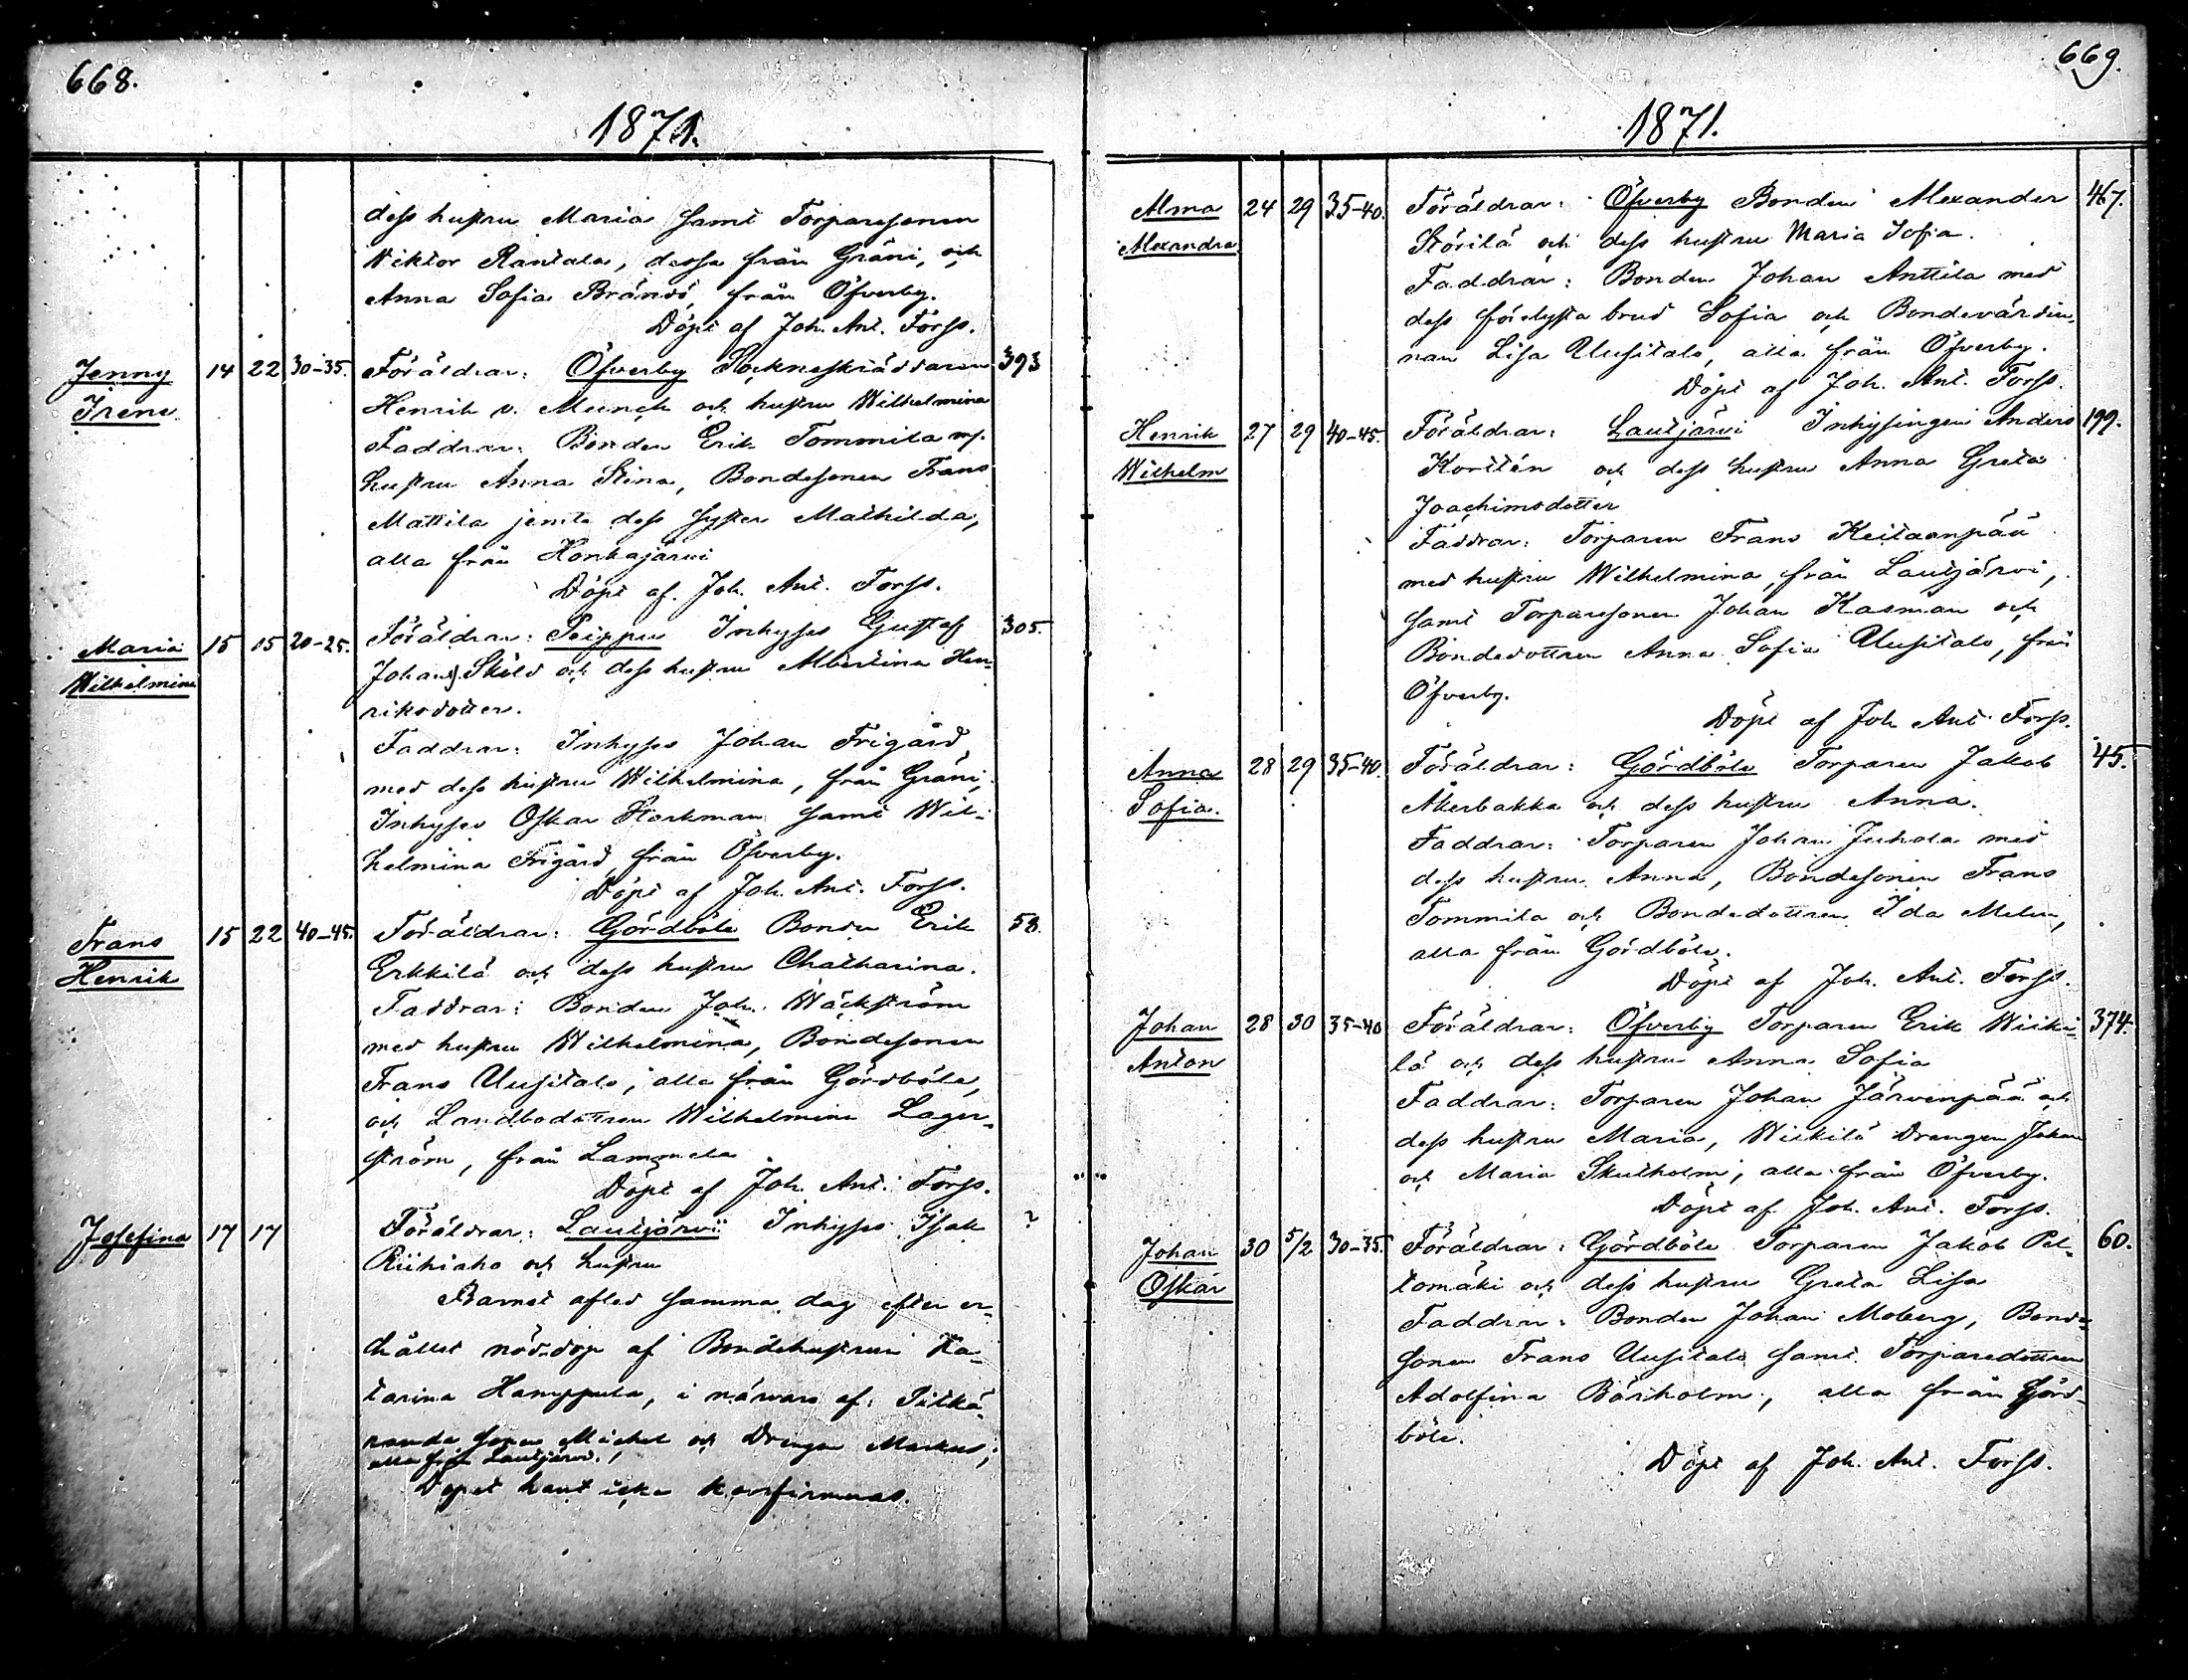 668.
1871.
dess hustru Maria samt Torparesonen
Wiktor Rantala, dessa från Gräni, och
Anna Sofia Brändö, från Öfverby.
Döpt af Joh. Ant. Forss.
Jenny Irene 14 22 30-35. Föräldrar: Öfverby Sockneskräddaren 393
Henrik v. Munck och hustru Wilhelmina
Faddrar: Bonden Erik Tommila m.
hustru Anna Stina, Bondesonen Frans
Mattila jemte dess syster Mathilda,
alla från Honkajärvi
Döpt af. Joh. Ant. Forss.
Maria Wilhelmina 15 15 20-25. Föräldrar: Peippu Inhyses Gustaf 305.
Johan Sköld och dess hustru Albertina Hen-
riksdotter.
Faddrar: Inhyses Johan Frigård
med dess hustru Wilhelmina, från Gräni,
Inhyses Oskar Storkman samt Wil-
helmina Frigård från Öfverby.
Döpt af Joh. Ant. Forss.
Frans Henrik 15 22 40-45. Föräldrar: Gördböle Bonden Erik 58.
Erkkilä och dess hustru Chatharina.
Faddrar: Bonden Joh. Wäckström
med hustru Wilhelmina, Bondesonen
Frans Uusitalo, alla från Gördböle,
och Landbodottren Wilhelmina Lager-
ström, från Lammela
Döpt af Joh. Ant. Forss.
Josefina 17 17 Föräldrar: Lautjärvi Inhyses Isak ?
Riihiaho och hustru
Barnet afled samma dag efter er-
hållet nöddop af Bondehustrun Ka-
tarina Hamppula, i närvaro af: Pitkä-
randa sonen Michel och Drengen Markus,
alla från Lautjärvi.
Dopet hant icke konfirmeras.
669.
1871.
Alma Alexandra 24 29 35-40. Föräldrar: Öfverby Bonden Alexander 467.
Störilä och dess hustru Maria Sofia.
Faddrar: Bonden Johan Anttila med
dess förelysta brud Sofia och Bondevärdin-
nan Lisa Uusitalo, alla från Öfverby.
Döpt af Joh. Ant. Forss.
Henrik Wilhelm 27 29 40-45. Föräldrar: Lautjärvi Inhysingen Anders 199.
Kortén och dess hustru Anna Greta
Joachimsdotter
Faddrar: Torparen Frans Keitaanpää
med hustru Wilhelmina, från Lautjärvi,
samt Torparesonen Johan Kasman och
Bondedottren Anna Sofia Uusitalo, från
Öfverby.
Döpt af Joh Ant. Forss.
Anna Sofia. 28 29 35-40. Föräldrar: Gördböle Torparen Jakob 45.
Åkerbakka och dess hustru Anna.
Faddrar: Torparen Johan Juhola med
dess hustru Anna, Bondesonen Frans
Tommila och Bondedottren Ida Melin,
alla från Gördböle.
Döpt af Joh. Ant. Forss.
Johan Anton 28 30 35-40 Föräldrar: Öfverby Torparen Erik Wiiki- 374.
lä och dess hustru Anna Sofia
Faddrar: Torparen Johan Järvenpää och
dess hustru Maria, Wiikilä Drengen Johan
och Maria Skutholm, alla från Öfverby.
Döpt af Joh. Ant. Forss.
Johan Oskar 30 5/2 30-35. Föräldrar: Gördböle Torparen Jakob Pel- 60.
tomäki och dess hustru Greta Lisa
Faddrar: Bonden Johan Moberg, Bonde-
sonen Frans Uusitalo samt Torparedottren
Adolfina Börholm, alla från Görd-
böle.
Döpt af Joh. Ant. Forss.